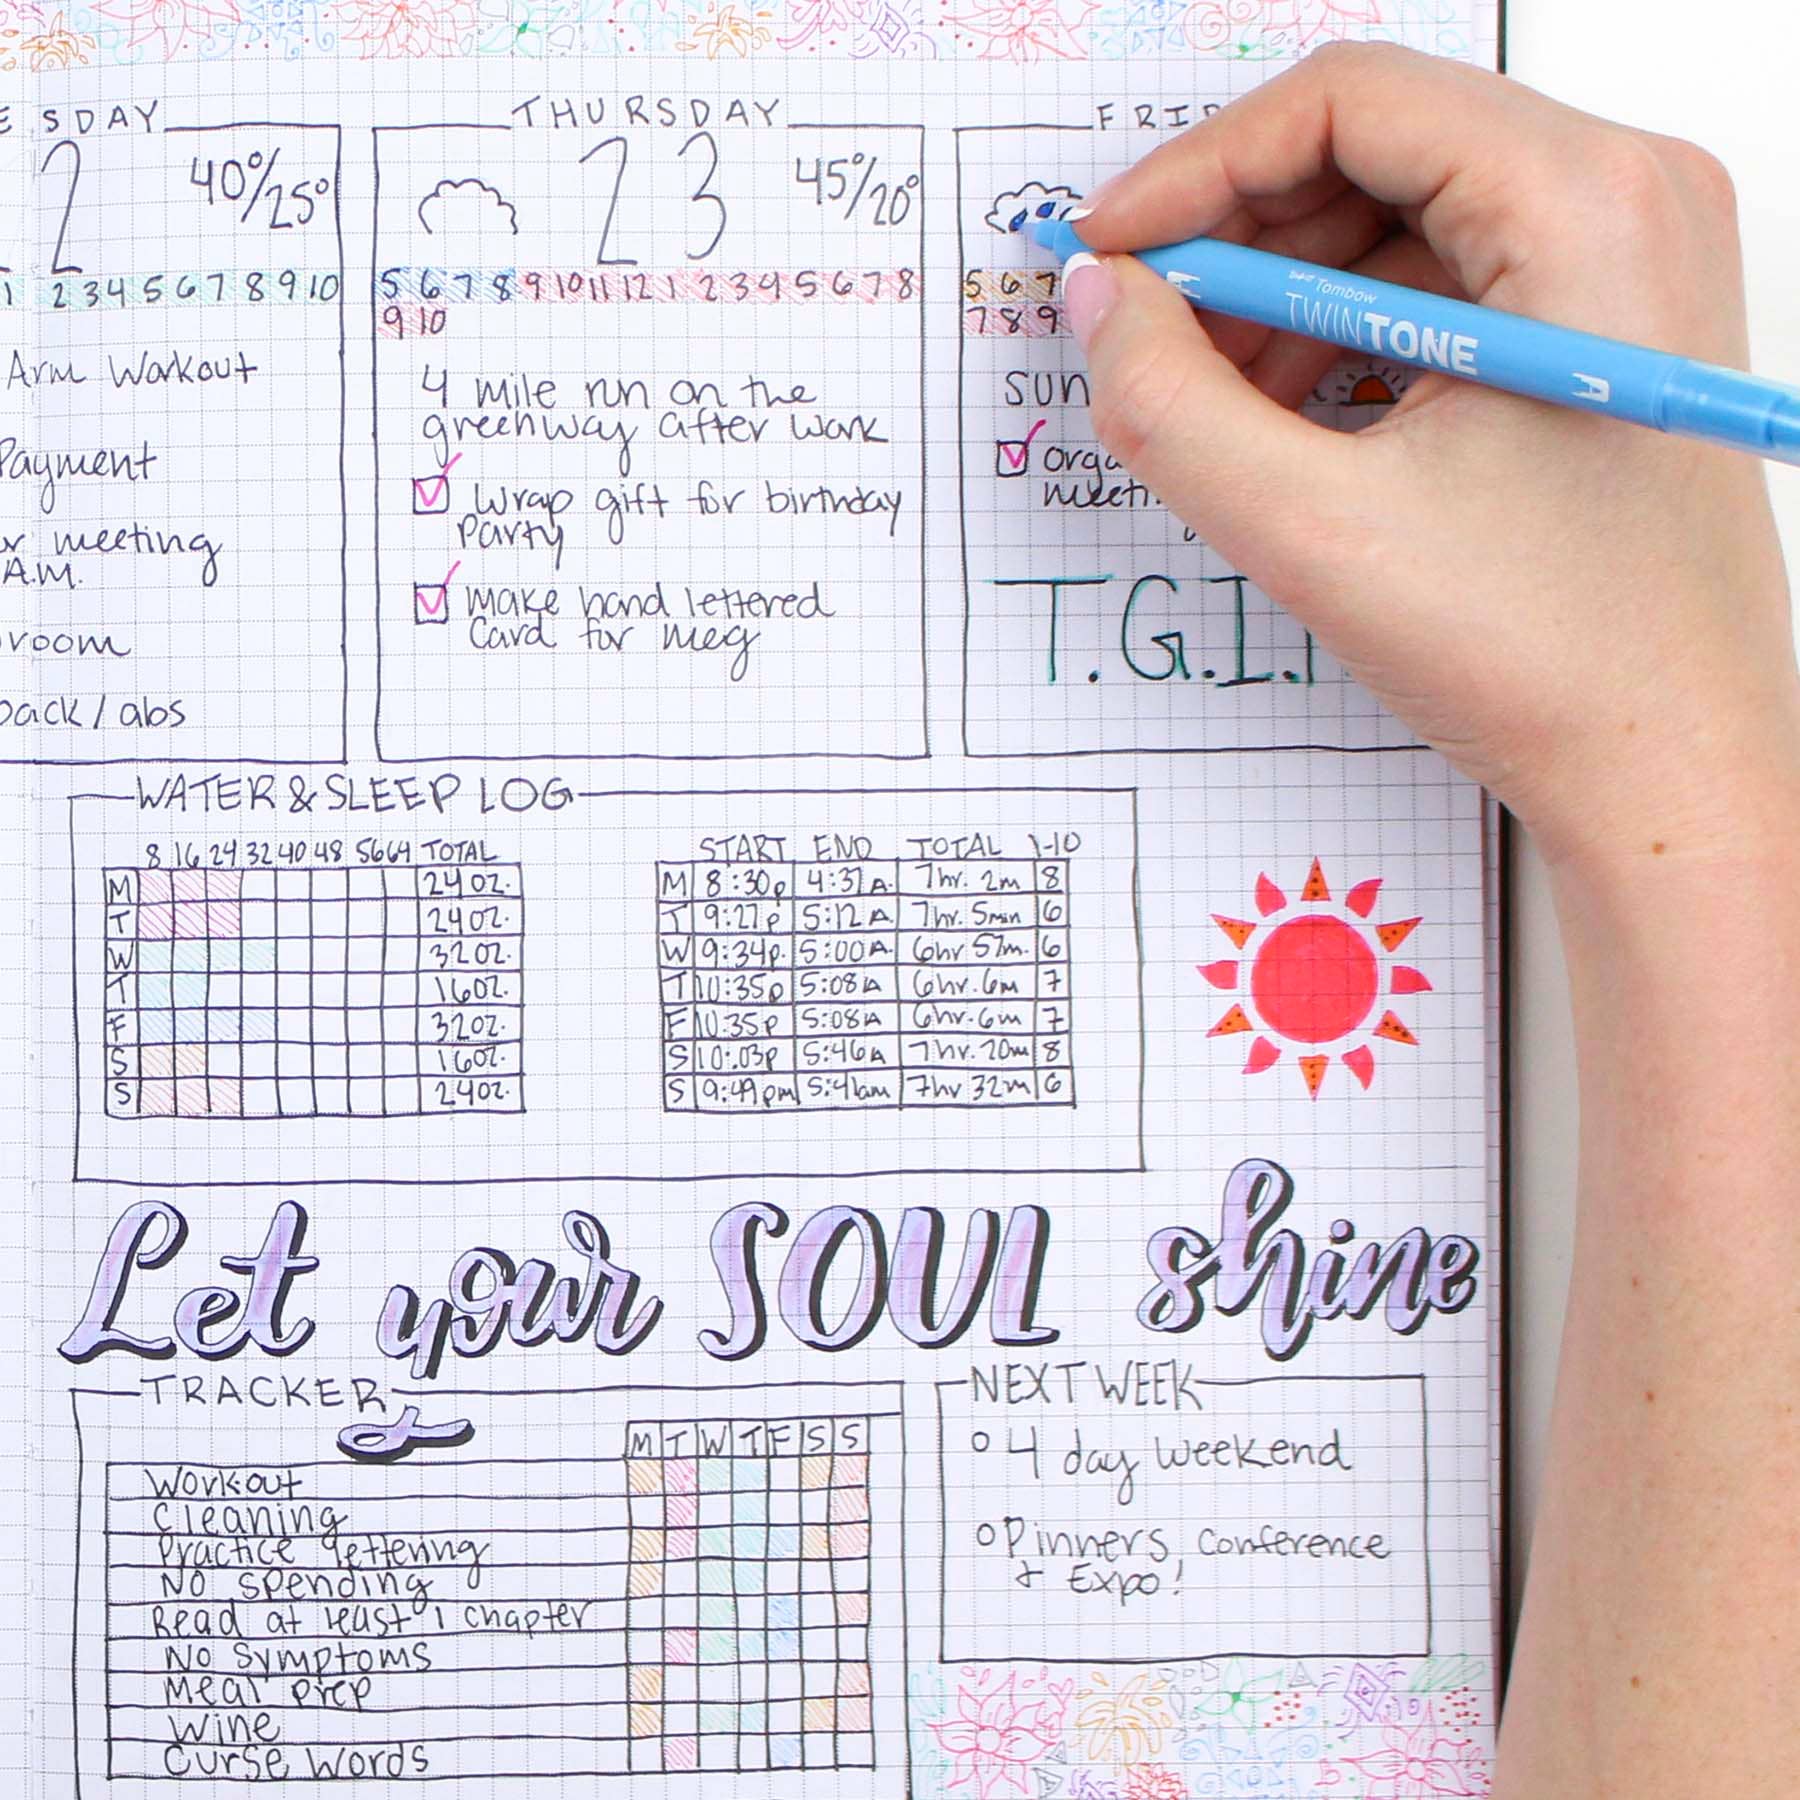 ESDAY
2
40°/25°
1 2 3 4 5 6 7 8 9 10
Arm Workout
Payment
meeting
A.M.
room
back/abs
THURSDAY
23
45°/20°
5 6 7 8 9 10 11 12 1 2 3 4 5 6 7 8
9 10
4 mile run on the
greenway after work
wrap gift for birthday
party
make hand lettered
card for meg
FRI
5 6 7
7 8 9
SUN
orga
meeti
T.G.I.
Tombow
TWINTONE
WATER & SLEEP LOG
8 16 24 32 40 48 56 64 TOTAL
M 24 oz.
T 24 oz.
W 32 oz.
T 16 oz.
F 32 oz.
S 16 oz.
S 24 oz.
START END TOTAL 1-10
M 8:30p 4:37A. 7hr. 2m 8
T 9:27p 5:12A. 7hr. 5min 6
W 9:34p. 5:00A. 6hr 57m. 6
T 10:35p 5:08A 6hr. 6m 7
F 10:35P 5:08A 6hr. 6m 7
S 10:03p 5:46A 7hr. 20m 8
S 9:49pm 5:41am 7hr 32m 6
Let your SOUL shine
TRACKER
M T W T F S S
Workout
Cleaning
Practice lettering
No spending
Read at least 1 chapter
No symptoms
Meal prep
Wine
Curse words
NEXT WEEK
4 day weekend
Pinners Conference
+ Expo!